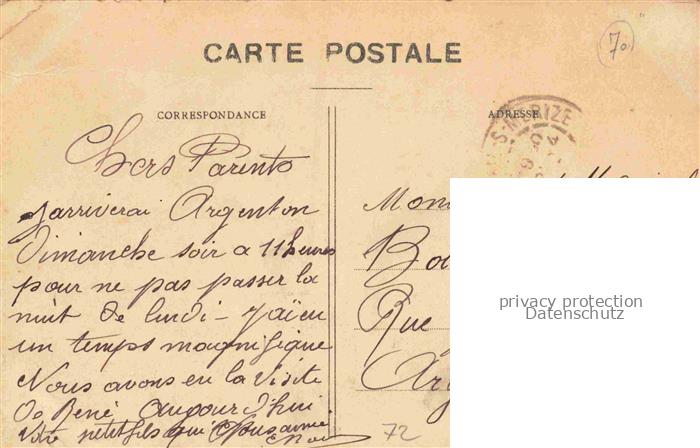 CARTE POSTALE
70
CORRESPONDANCE
Chers Parents
j'arriverai Argenton
Dimanche soir a 11 heures
pour ne pas passer la
nuit de lundi - j'ai eu
un temps magnifique
Nous avons eu la visite
De René Aujourd'hui
Votre petit fils qui
72
ADRESSE
S-MERIZE
Mon
Bou
Rue
Arg
privacy protection
Datenschutz